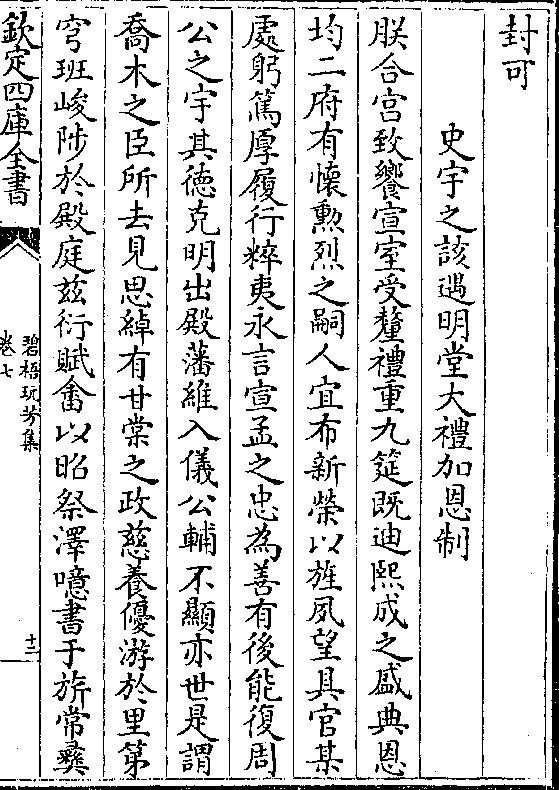 封可
史宇之該遇明堂大禮加恩制
朕合宫致饗宣室受釐禮重九筵既迪熙成之盛典恩
均二府有懷勲烈之嗣人宜布新榮以旌夙望具官某
處躬篤厚履行粹夷永言宣孟之忠為善有後能復周
公之宇其徳克明出殿藩維入儀公輔不顯亦世是謂
喬木之臣所去見思綽有甘棠之政慈養優游於里第
穹班峻陟於殿庭兹衍賦畬以昭祭澤噫書于旂常彝
欽定四庫全書
碧梧玩芳集
卷七
十二